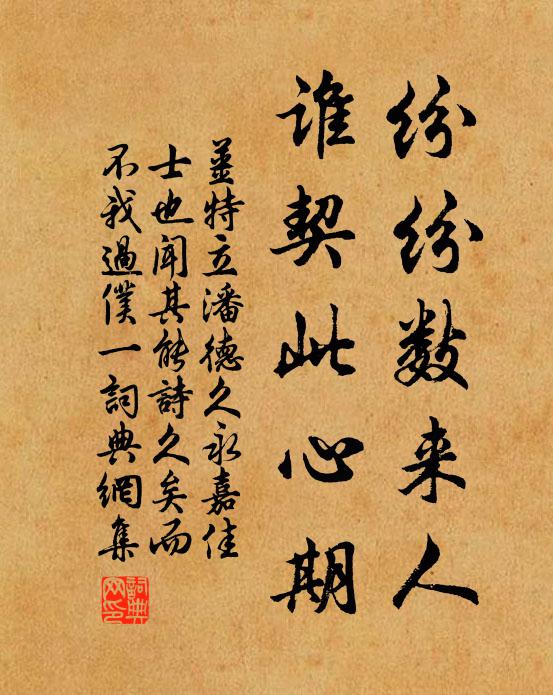 纷纷数来人
谁契此心期
姜特立潘德久永嘉佳
士也闻其能诗久矣而
不我过仆一词典网集
词典网印